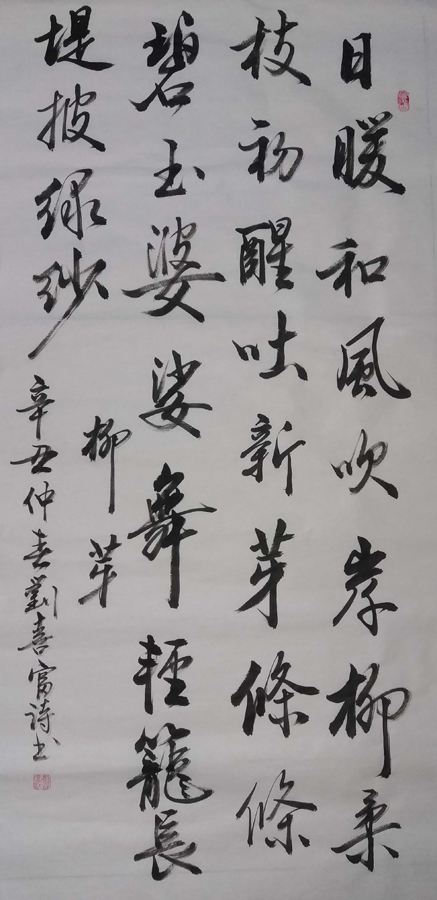 日暖和風吹岸柳柔
枝初醒吐新芽條條
碧玉婆娑舞輕籠長
堤披绿纱
柳芽
辛丑仲春劉喜富詩书